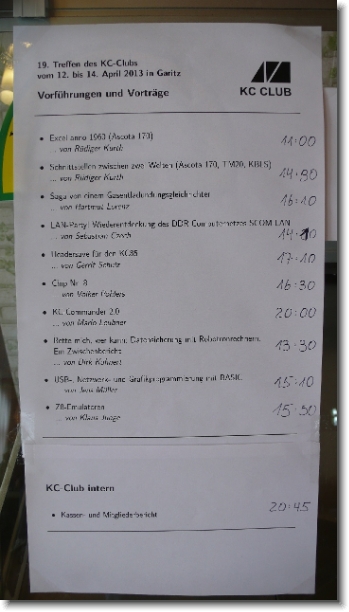 19. Treffen des KC-Clubs
vom 12. bis 14. April 2013 in Garitz
Vorführungen und Vorträge
KC CLUB
• Excel anno 1960 (Ascota 170) 11:00
... von Rüdiger Kurth
• Schnittstellen zwischen zwei Welten (Ascota 170, TM20, KBLS)
... von Rüdiger Kurth
• Saga von einem Gasentladungsgleichrichter 16:10
... von Hartmut Lorenz
• LAN-Party! Wiederentdeckung des DDR Computernetzes SCOM-LAN
... von Sebastian Czech
• Headersave für den KC85 17:10
... von Gerrit
• Clap Nr. 8 16:30
... von Volker
• KC Commander 2.0 20:00
... von Mario Leubner
• Rette mich, wer kann: Datensicherung mit Robotronrechnern. 13:30
Ein Zwischenbericht
... von Dirk Kahnert
• USB-, Netzwerk- und Grafikprogrammierung mit BASIC 15:10
... von Jens Müller
• Z8-Emulatoren
... von Klaus Junge
KC-Club intern
• Kassen- und Mitgliederbericht 20:45